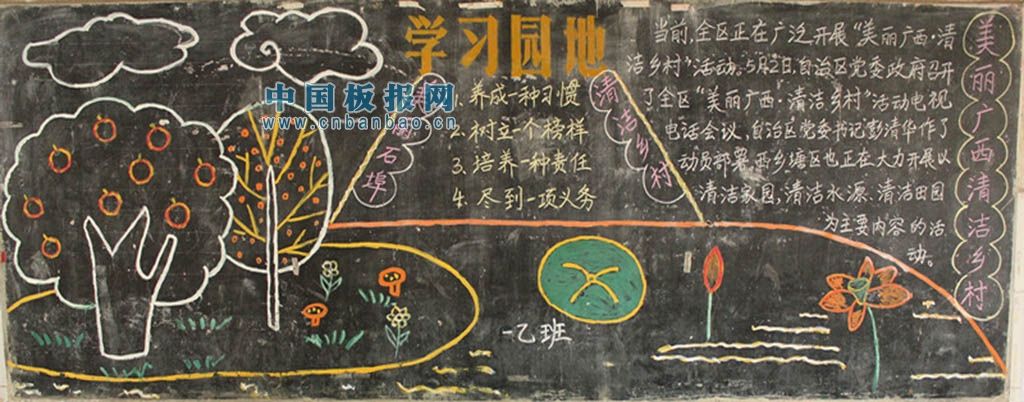 学习园地
中国板报网
www.cnbanbao.cn
养成一种习惯
2. 树立一个榜样
3. 培养一种责任
4. 尽到一项义务
石埠
清洁乡村
当前,全区正在广泛开展“美丽广西·清
洁乡村”活动。5月2日,自治区党委政府召开
了全区“美丽广西·清洁乡村”活动电视
电话会议、自治区党委书记彭清华作了
动员部署。西乡塘区也正在大力开展以
清洁家园,清洁水源、清洁田园
为主要内容的活
动。
美丽广西清洁乡村
一乙班